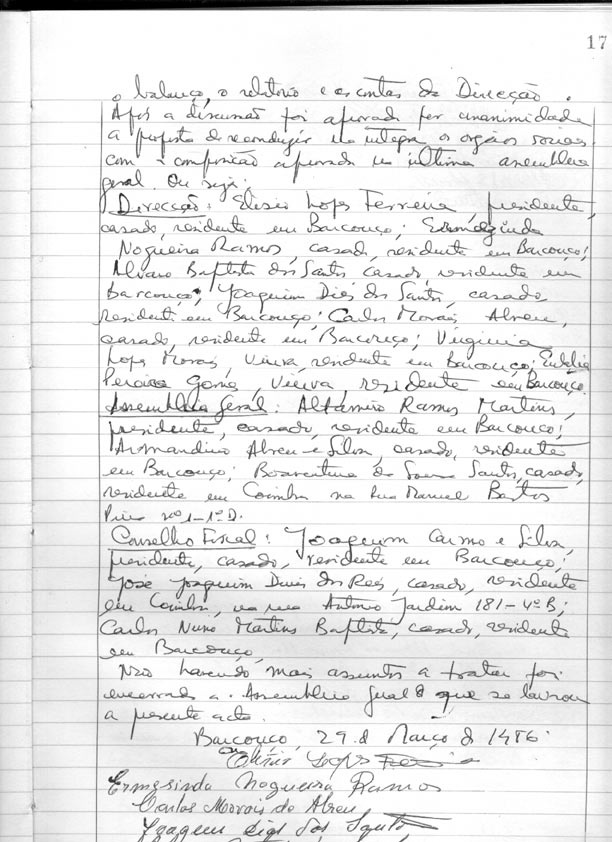 17
o balanço, o relatório e as contas da Direcção.
Após a discussão foi aprovada por unanimidade
a proposta de reconduzir na íntegra os orgãos sociais
com a composição aprovada na última assembleia
geral. Ou seja:
Direcção: Elísio Lopes Ferreira, presidente,
casado, residente em Barcouço; Ermezinda
Nogueira Ramos, casada, residente em Barcouço;
Alvaro Baptista dos Santos, casado, residente em
Barcouço; Joaquim Dias dos Santos, casado,
residente em Barcouço; Carlos Morais Abreu,
casado, residente em Barcouço; Virginia
Lopes Morais, viúva, residente em Barcouço; Eulália
Pereira Gomes, viúva, residente em Barcouço.
Assembleia Geral: Altamiro Ramos Martins,
presidente, casado, residente em Barcouço;
Armandino Abreu e Silva, casado, residente
em Barcouço; Boaventura de Sousa Santos, casado,
residente em Coimbra na Rua Manuel Bastos
Pina nº 1-1º D.
Conselho Fiscal: Joaquim Carmo e Silva,
presidente, casado, residente em Barcouço;
José Joaquim Dinis dos Reis, casado, residente
em Coimbra, na rua António Jardim 181-4º B;
Carlos Nuno Martins Baptista, casado, residente
em Barcouço.
Não havendo mais assuntos a tratar foi
encerrada a Assembleia Geral de que se lavrou
a presente acta.
Barcouço, 29 de Março de 1986.
Elísio Lopes Ferreira
Ermesinda Nogueira Ramos
Carlos Morais de Abreu
Joaquim Dias dos Santos